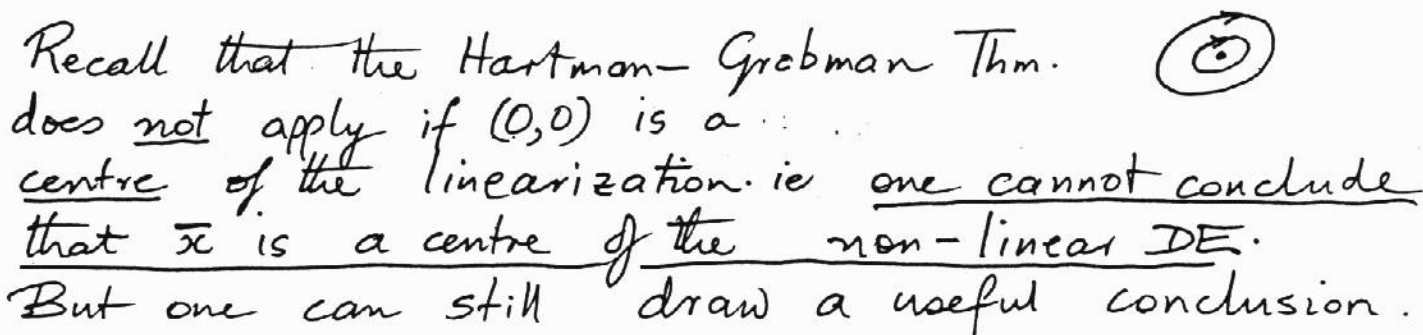 Recall that the Hartman-Grobman Thm.
does not apply if (0,0) is a
centre of the linearization. ie one cannot conclude
that x̄ is a centre of the non-linear DE.
But one can still draw a useful conclusion.